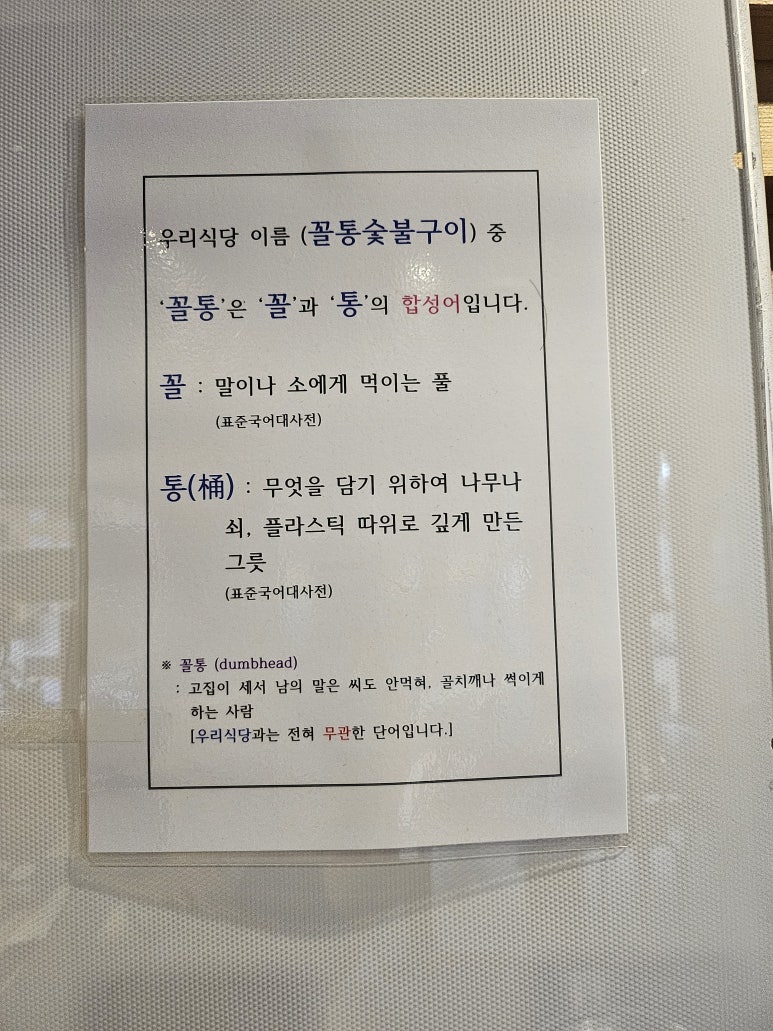 우리식당 이름 (꼴통숯불구이) 중
‘꼴통’은 ‘꼴’과 ‘통’의 합성어입니다.
꼴 : 말이나 소에게 먹이는 풀
(표준국어대사전)
통(桶) : 무엇을 담기 위하여 나무나
쇠, 플라스틱 따위로 깊게 만든
그릇
(표준국어대사전)
※ 꼴통 (dumbhead)
: 고집이 세서 남의 말은 씨도 안먹혀, 골치깨나 썩이게
하는 사람
[우리식당과는 전혀 무관한 단어입니다.]